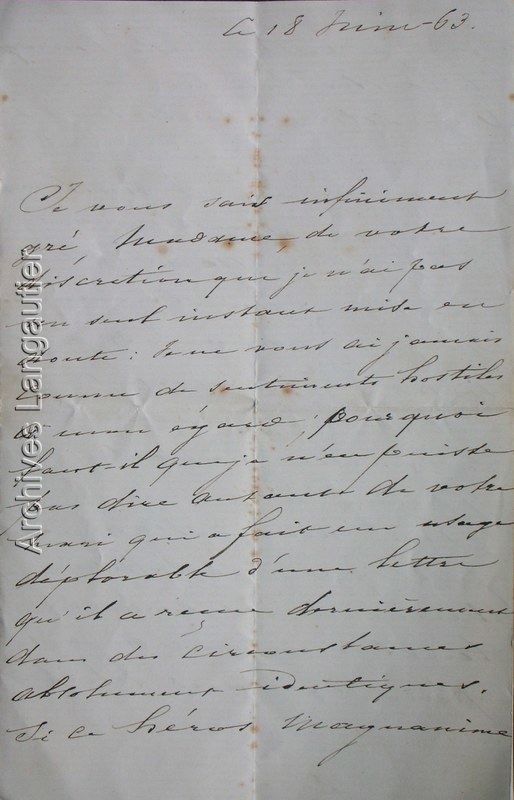 Ce 18 Juin 63.
Je vous sais infiniment
gré Madame, de votre
discrétion que je n'ai pas
un seul instant mise en
doute : Je ne vous ai jamais
connu de sentiments hostiles
à mon égard ; pourquoi
faut-il que je n'en puisse
pas dire autant de votre
mari qui a fait un usage
déplorable d'une lettre
qu'il a reçue dernièrement
dans des circonstances
absolument identiques.
Si ce héros Magnanime
Archives Langautier